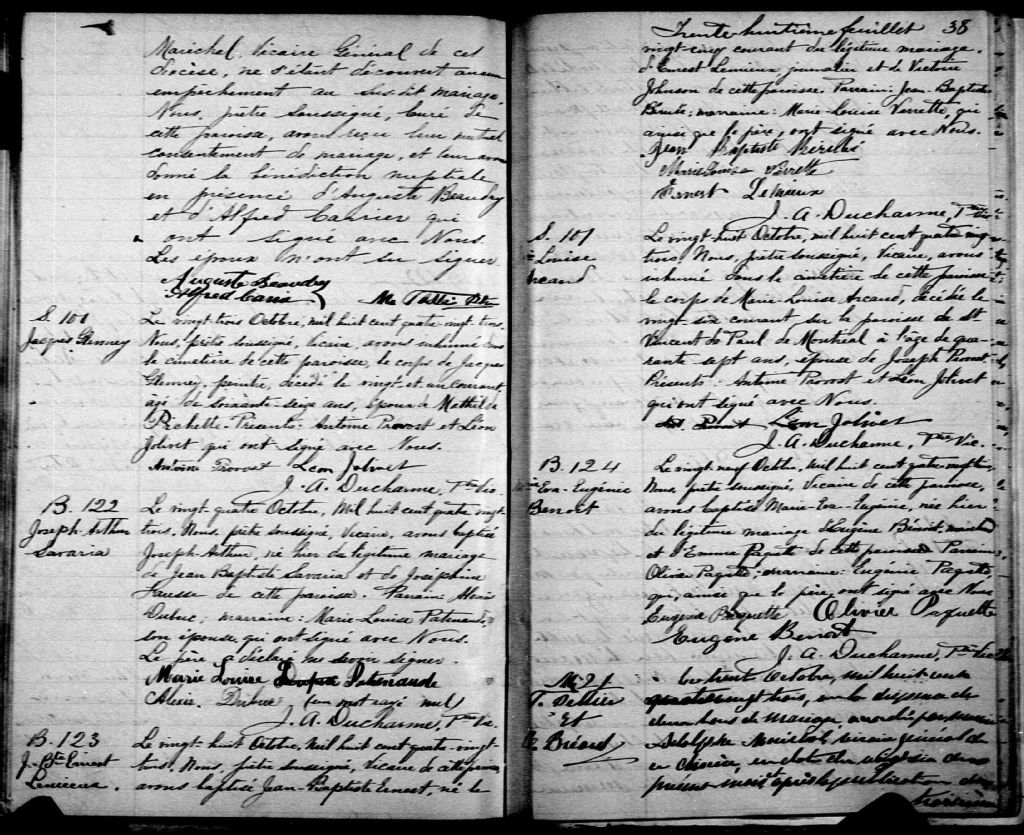 Maréchal, Vicaire Général de cet
diocèse, ne s'étant découvert aucun
empêchement au susdit mariage,
Nous, prêtre soussigné, curé de
cette paroisse, avons reçu leur mutuel
consentement de mariage, et leur avons
donné la bénédiction nuptiale
en présence d'Auguste Beaudry
et d'Alfred Carrier qui
ont signé avec Nous.
Les époux n'ont su signer
Auguste Beaudry
Alfred
S. 101
Jacques
Le vingt-trois Octobre, mil huit cent quatre-vingt-trois,
Nous, prêtre soussigné, Vicaire, avons inhumé dans
le cimetière de cette paroisse, le corps de Jacques
peintre, décédé le vingt et un courant,
agé de soixante-seize ans, époux de Mathilde
Présents: Antoine Provost et Léon
Jolivet qui ont signé avec Nous.
Antoine Provost Léon Jolivet
J. A. Ducharme, Ptre Vic.
B. 122
Joseph-Arthur
Savaria
Le vingt-quatre Octobre, Mil huit cent quatre-vingt-
trois, Nous, prêtre soussigné, Vicaire, avons baptisé
Joseph-Arthur, né hier du légitime mariage
de Jean Baptiste Savaria et de Joséphine
de cette paroisse. Parrain: Alexis
Dubuc; marraine: Marie-Louise Patenaude,
son épouse, qui ont signé avec Nous.
Le père a déclaré ne savoir signer.
Marie Louise Patenaude
Alexis Dubuc (un mot rayé nul)
J. A. Ducharme, Ptre Vic.
B. 123
J.-Bte Ernest
Lemieux.
Le vingt-huit Octobre, mil huit cent quatre-vingt-
trois, Nous, prêtre soussigné, Vicaire de cette paroisse,
avons baptisé Jean-Baptiste Ernest, né le
Trente-huitième feuillet 38
vingt-cinq courant du légitime mariage
d'Ernest Lemieux, journalier et de Victoire
Johnson de cette paroisse. Parrain: Jean-Baptiste
marraine: Marie-Louise Verrette, qui
ainsi que le père, ont signé avec Nous.
Jean Baptiste
Marie Louise Verrette
Ernest Lemieux
J. A. Ducharme, Ptre Vic.
S. 101
Louise
Arcand
Le vingt-huit Octobre, mil huit cent quatre-vingt
trois, Nous, prêtre soussigné, Vicaire, avons
inhumé dans le cimetière de cette paroisse
le corps de Marie-Louise Arcand, décédée le
vingt-six courant sur la paroisse de St
Vincent de Paul de Montréal à l'âge de qua-
rante sept ans, épouse de Joseph Provost
Présents: Antoine Provost et Léon Jolivet
qui ont signé avec Nous.
Ant. Provost Léon Jolivet
J. A. Ducharme, Ptre Vic.
B. 124
Eva-Eugénie
Benoit
Le vingt-neuf Octobre, mil huit cent quatre-vingt-trois,
Nous, prêtre soussigné, Vicaire de cette paroisse,
avons baptisé Marie-Eva-Eugénie, née hier
du légitime mariage d'Eugène Benoit,
et d'Emma Paquette de cette paroisse Parrain:
Olivier Paquette; marraine: Eugénie Paquette,
qui, ainsi que le père, ont signé avec Nous
Eugénie Paquette Olivier Paquette
Eugène Benoit
J. A. Ducharme, Ptre Vic.
M. 21
T. Pelletier
Et
Le trente Octobre, mil huit cent
quatre-vingt-trois, vu la dispense de
deux bans de mariage accordée par
Adolphe Maréchal, vicaire général de
ce diocèse, en date du vingt-six du
présent mois et après la publication du
troisième